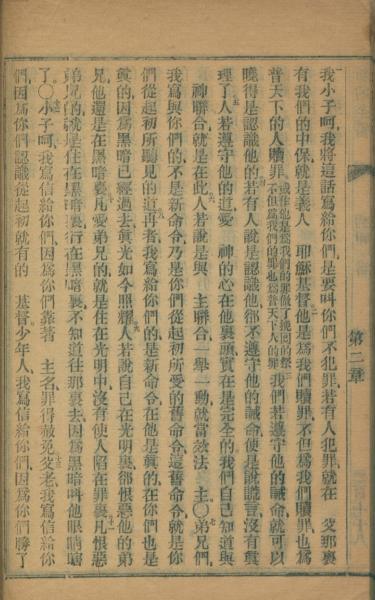 第二章
我小子呵、我將這話寫給你們、是要叫你們不犯罪、若有人犯罪、就在 父那裏
有我們的中保、就是義人 耶穌基督、他是爲我們贖罪、不但爲我們贖罪、也爲
普天下的人贖罪、或作他是爲我們的罪做了挽回的祭不但爲我們的罪也爲普天下人的罪我們若遵守他的誡命、就可以
曉得是認識他的、若有人說是認識他、卻不遵守他的誡命、便是說謊言、沒有眞
理了、人若遵守他的道、愛 神的心在他裏頭、實在是完全的、我們自己知道與
神聯合、就是在此、人若說是與 主聯合、一舉一動就當效法 主、〇弟兄們、
我寫與你們的、不是新命令、乃是你們從起初所受的舊命令、這舊命令就是你
們從起初所聽見的道、再者、我寫給你們的、是新命令、在他是眞的、在你們也是
眞的、因爲黑暗已經過去、眞光如今照耀、人若說自己在光明裏、卻恨惡他的弟
兄、他還是在黑暗裏、凡愛弟兄的、就是住在光明中、沒有使人陷在罪裏、凡恨惡
弟兄的、就是住在黑暗裏、行在黑暗裏、不知道往那裏去、因爲黑暗叫他眼睛瞎
了、〇小子呵、我寫信給你們、因爲你們靠著 主名罪得赦免、父老、我寫信給你
們、因爲你們認識從起初就有的 基督、少年人、我寫信給你們、因爲你們勝了